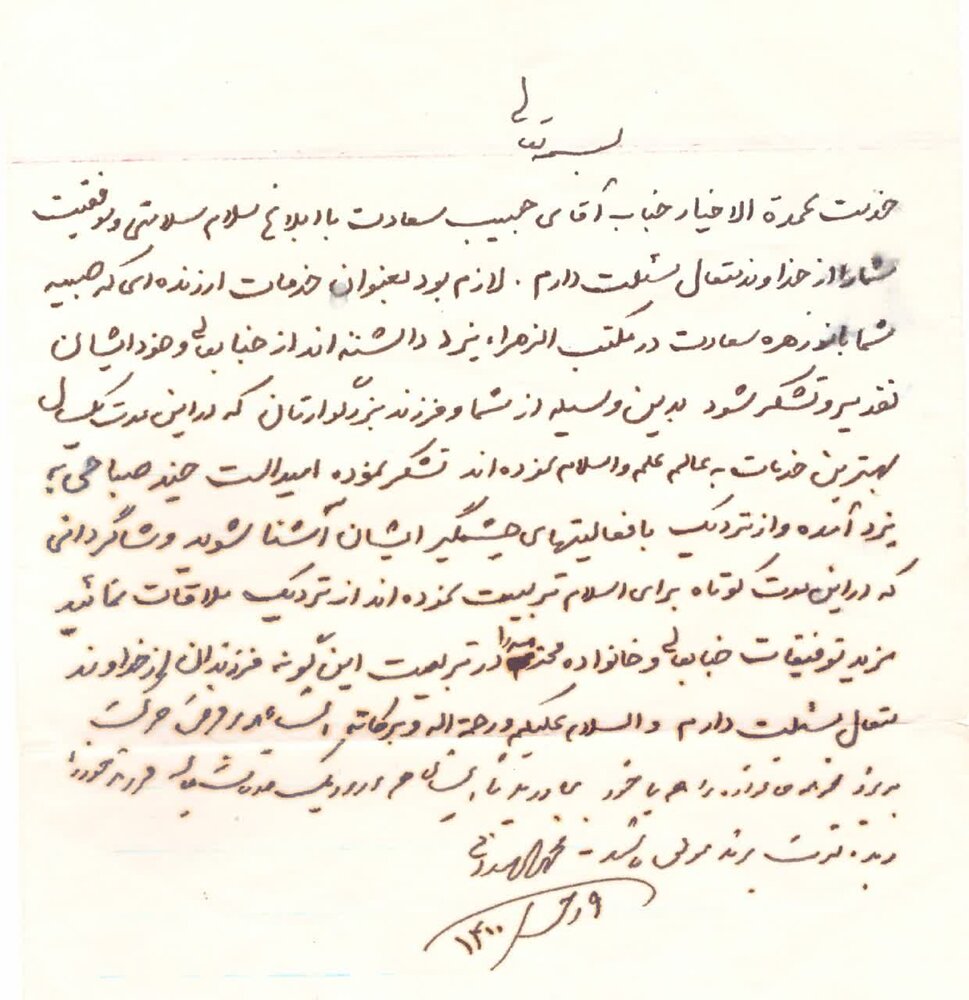 بسمه تعالی
خدمت عمدة الاخیار جناب آقای حبیب سعادت با ابلاغ سلام سلامتی و موفقیت
شما را از خداوند متعال مسئلت دارم . لازم بود بعنوان خدمات ارزنده ای که صبیه
شما بانو زهره سعادت در مکتب الزهراء یزد داشته اند از جنابعالی و خود ایشان
تقدیر و تشکر شود بدین وسیله از شما و فرزند بزرگوارتان که در این مدت یکسال
بهترین خدمات به عالم علم و اسلام نموده اند تشکر نموده امید است چند صباحی به
یزد آمده و از نزدیک با فعالیتهای چشمگیر ایشان آشنا شوید و شاگردانی
که در این مدت کوتاه برای اسلام تربیت نموده اند از نزدیک ملاقات نمائید
مزید توفیقات جنابعالی و خانواده محترم را در تربیت این گونه فرزندان از خداوند
متعال مسئلت دارم والسلام علیکم و رحمة اله و برکاته
با خود بیاورید تا ایشان هم از نزدیک
محمد صدوقی
۹ رجب ۱۴۰۰